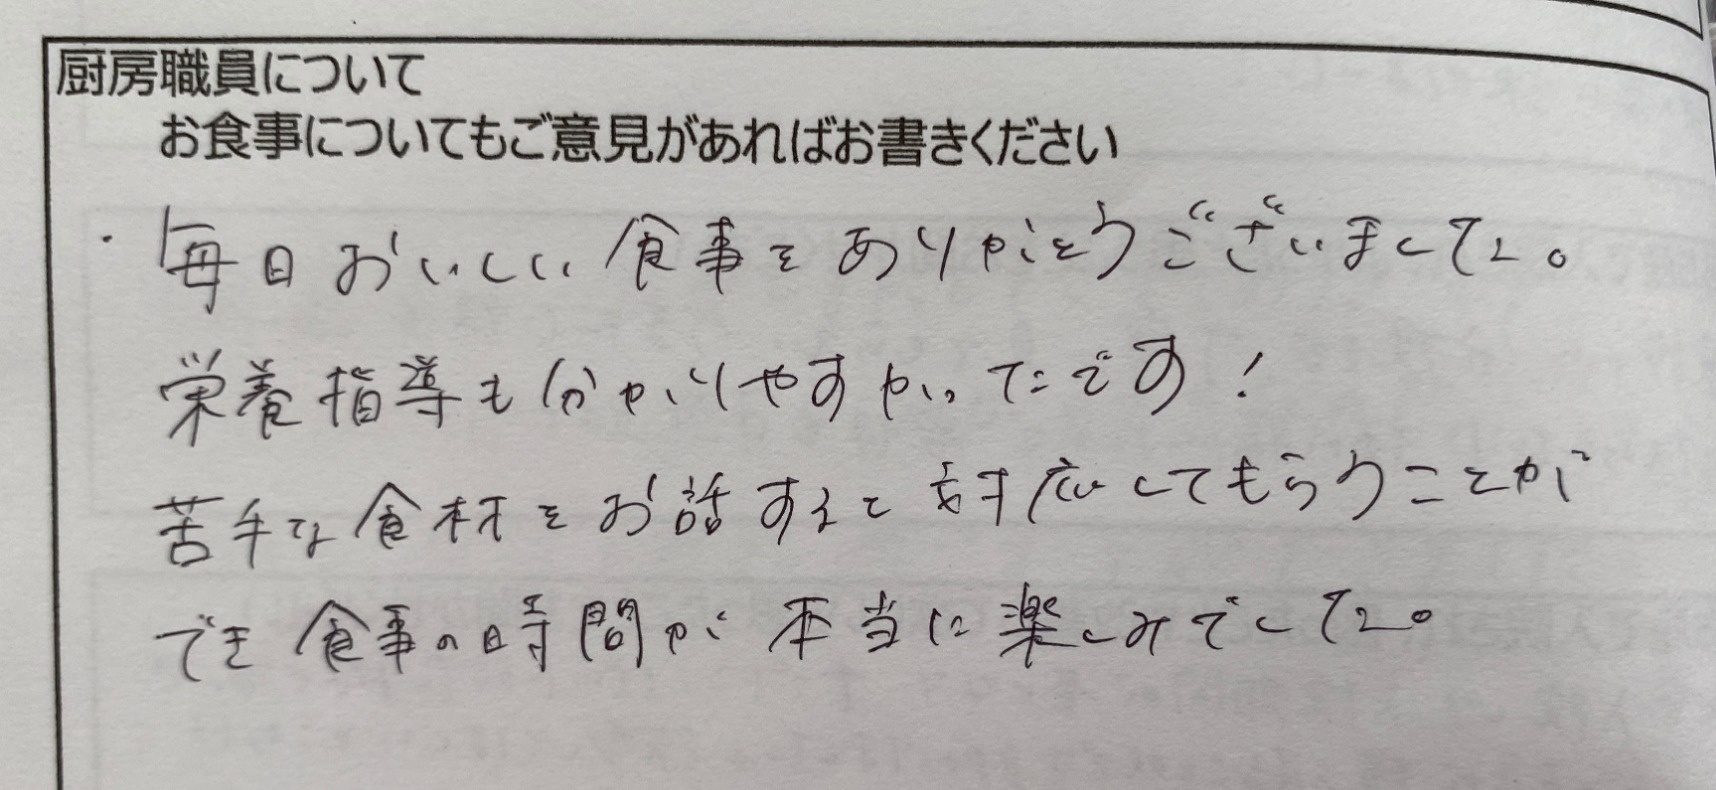 厨房職員について
お食事についてもご意見があればお書きください
・毎日おいしい食事をありがとうございました。
栄養指導も分かりやすかったです!
苦手な食材をお話すると対応してもらうことが
でき食事の時間が本当に楽しみでした。